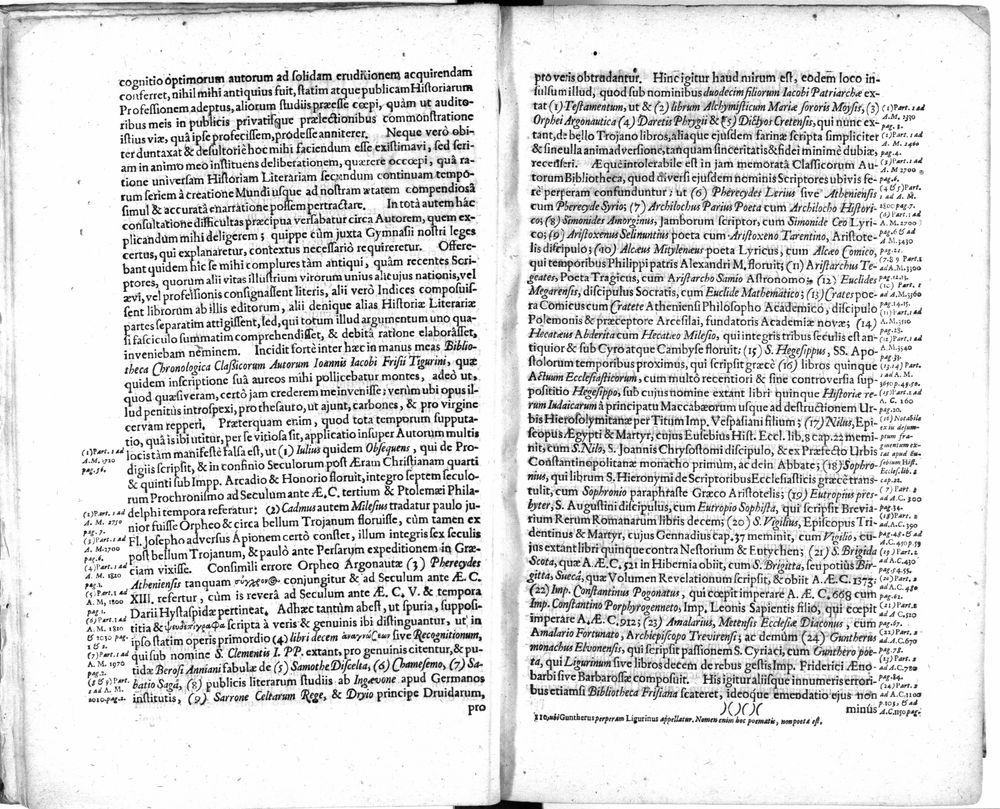 cognitio optimorum autorum ad solidam eruditionem acquirendam
conferret, nihil mihi antiquius fuit, statim atque publicam Historiarum
Professionem adeptus, aliorum studiis præesse cœpi, quàm ut audito-
ribus meis in publicis privatisque prælectionibus commonstratione
istius viæ, quâ ipse profecissem, prodesse anniterer. Neque verò obi-
ter duntaxat & desultoriè hoc mihi faciendum esse existimavi, sed seri-
am in animo meo instituens deliberationem, quærere occœpi, quâ ra-
tione universam Historiam Literariam secundum continuam tempo-
rum seriem à creatione Mundi usque ad nostram ætatem compendiosâ
simul & accuratâ enarratione possem pertractare. In totâ autem hâc
consultatione difficultas præcipua versabatur circa Autorem, quem ex-
plicandum mihi deligerem; quippe cùm juxta Gymnasii nostri leges
certus, qui explanaretur, contextus necessariò requireretur. Offere-
bant quidem hîc se mihi complures tàm antiqui, quàm recentes Scri-
ptores, quorum alii vitas illustrium virorum unius alicujus nationis, vel
ævi, vel professionis consignassent literis, alii verò Indices composuis-
sent librorum ab illis editorum, alii denique alias Historiæ Literariæ
partes separatim attigissent, sed, qui totum illud argumentum uno qua-
si fasciculo summatim comprehendisset, & debitâ ratione elaborâsset,
inveniebam neminem. Incidit fortè inter hæc in manus meas Biblio-
theca Chronologica Classicorum Autorum Ioannis Iacobi Frisii Tigurini, quæ
quidem inscriptione suâ aureos mihi pollicebatur montes, adeò ut,
quod quæsiveram, certò jam crederem me invenisse; verùm ubi opus il-
lud penitùs introspexi, pro thesauro, ut ajunt, carbones, & pro virgine
cervam repperi. Præterquam enim, quod tota temporum supputa-
tio, quâ is ibi utitur, per se vitiosa sit, applicatio insuper Autorum multis
locis tàm manifestè falsa est, ut (1) Iulius quidem Obsequens, qui de Pro-
digiis scripsit, & in confinio Seculorum post Æram Christianam quarti
& quinti sub Impp. Arcadio & Honorio floruit, integro septem seculo-
rum Prochronismo ad Seculum ante Æ, C. tertium & Ptolemæi Phila-
delphi tempora referatur: (2) Cadmus autem Milesius tradatur paulo ju-
nior fuisse Orpheo & circa bellum Trojanum floruisse, cùm tamen ex
Fl. Josepho adversus Apionem certò constet, illum integris sex seculis
post bellum Trojanum, & paulò ante Persarum expeditionem in Græ-
ciam vixisse. Consimili errore Orpheo Argonautæ (3) Pherecydes
Atheniensis tanquam σύγχρον⊙- conjungitur & ad Seculum ante Æ. C.
XIII. refertur, cùm is reverâ ad Seculum ante Æ. C. V. & tempora
Darii Hystaspidæ pertineat. Adhæc tantùm abest, ut spuria, supposi-
titia & ψευδεπίγραφα scripta à veris & genuinis ibi distinguantur, ut in
ipso statim operis primordio (4) libri decem ἀναγνώσεων sive Recognitionum,
qui sub nomine S. Clementis I. PP. extant, pro genuinis citentur, & pu-
tidæ Berosi Anniani fabulæ de (5) Samothe Discelta, (6) Chamesemo, (7) Sa-
batio Sagâ, (8) publicis literarum studiis ab Ingævone apud Germanos
institutis, (9) Sarrone Celtarum Rege, & Dryio principe Druidarum,
pro
(1) Part. 1 ad
A. M. 3720
pag. 56.
(2) Part. 1 ad
A. M. 2750
pag. 7.
(3) Part. 1 ad
A. M. 2700
pag. 6.
(4) Part. 1 ad
A. M. 1820
pag. 3.
(5) Part. 1 ad
A. M. 1800
pag. 1.
(6) Part. 1 ad
A. M. 1810
(7) Part. 1 ad
A. M. 1970
pag. 2.
(8 & 9) Part.
1 ad A. M.
2010 pag. 2.
pro veris obtrudantur. Hinc igitur haud mirum est, eodem loco in-
sulsum illud, quod sub nominibus duodecim filiorum Iacobi Patriarchæ ex-
tat (1) Testamentum, ut & (2) librum Alchymisticum Mariæ sororis Moysis, (3)
Orphei Argonautica (4) Daretis Phrygii & (5) Dictyos Cretensis, qui nunc ex-
tant, de bello Trojano libros, aliaque ejusdem farinæ scripta simpliciter
& sine ulla animadversione, tanquam sinceritatis & fidei minimè dubiæ,
recenseri. Æquè intolerabile est in jam memorata Classicorum Au-
torum Bibliotheca, quod diversi ejusdem nominis Scriptores ubivis fe-
rè perperam confunduntur; ut (6) Pherecydes Lerius sive Atheniensis
cum Pherecyde Syrio; (7) Archilochus Parius Poeta cum Archilocho Histori-
co; (8) Simonides Amorginus, Jamborum scriptor, cum Simonide Ceo Lyri-
co; (9) Aristoxenus Selinuntius poeta cum Aristoxeno Tarentino, Aristote-
lis discipulo; (10) Alcæus Mitylenæus poeta Lyricus, cum Alcæo Comico,
qui temporibus Philippi patris Alexandri M, floruit; (11) Aristarchus Te-
geates, Poeta Tragicus, cum Aristarcho Samio Astronomo; (12) Euclides
Megarensis, discipulus Socratis, cum Euclide Mathematico; (13) Crates poe-
ta Comicus cum Cratete Atheniensi Philosopho Academico, discipulo
Polemonis & præceptore Arcesilai, fundatoris Academiæ novæ; (14)
Hecatæus Abderita cum Hecatæo Milesio, qui integris tribus seculis est an-
tiquior & sub Cyro atque Cambyse floruit; (15) S. Hegesippus, SS. Apo-
stolorum temporibus proximus, qui scripsit græcè (16) libros quinque
Actuum Ecclesiasticorum, cum multò recentiori & sine controversia sup-
posititio Hegesippo, sub cujus nomine extant libri quinque Historiæ re-
rum Iudaicarum à principatu Maccabæorum usque ad destructionem Ur-
bis Hierosolymitanæ per Titum Imp. Vespasiani filium; (17) Nilus, Epi-
scopus Ægypti & Martyr, cujus Eusebius Hist. Eccl. lib. 8 cap. 22 memi-
nit, cum S. Nilo, S. Joannis Chrysostomi discipulo, & ex Præfecto Urbis
Constantinopolitanæ monacho primùm, ac dein Abbate; (18) Sophro-
nius, qui librum S. Hieronymi de Scriptoribus Ecclesiasticis græcè trans-
tulit, cum Sophronio paraphraste Græco Aristotelis; (19) Eutropius pres-
byter, S. Augustini discipulus, cum Eutropio Sophistâ, qui scripsit Brevia-
rium Rerum Romanarum libris decem; (20) S. Vigilius, Episcopus Tri-
dentinus & Martyr, cujus Gennadius cap. 37 meminit, cum Vigilio, cu-
jus extant libri quinque contra Nestorium & Eutychen; (21) S. Brigida
Scota, quæ A. Æ. C. 521 in Hibernia obiit, cum S. Brigitta, seu potiùs Bir-
gitta, Suecâ, quæ Volumen Revelationum scripsit, & obiit A. Æ. C. 1373;
(22) Imp. Constantinus Pogonatus, qui cœpit imperare A. Æ. C. 668 cum
Imp. Constantino Porphyrogenneto, Imp, Leonis Sapientis filiô, qui cœpit
imperare A, Æ. C. 912; (23) Amalarius, Metensis Ecclesiæ Diaconus, cum
Amalario Fortunato, Archiepiscopo Trevirensi; ac demùm (24) Guntherus
monachus Elvonensis, qui scripsit passionem S. Cyriaci, cum Gunthero poe-
ta, qui Ligurinum sive libros decem de rebus gestis Imp. Friderici Æno-
barbi sive Barbarossæ composuit. His igitur aliisque innumeris errori-
bus etiamsi Bibliotheca Frisiana scateret, ideoque emendatio ejus non
)( )( )( minùs
110, ubi Guntherus perperam Ligurinus appellatur. Nomen enim hoc poematis, non poetæ est.
(1) Part. 1 ad
A. M. 2330
pag. 3.
(2) Part. 1 ad
A. M. 2460
pag. 4.
(3) Part. 1 ad
A. M. 2700
pag. 6.
(4 & 5) Part.
1 ad A. M.
2800 pag. 7.
(6) Part. 1 ad
A. M. 2700
pag. 6 & ad
A. M. 3430
pag. 22.
(7. 8. 9 Part. 1
ad A. M. 3300
(10) Part. 1
ad A. M. 3360
pag. 14. 15.
(11) Part. 1 ad
A. M. 3510
pag. 28.
(12) Part. 1 ad
A. M. 3540
pag. 33.
(13. 14) Part.
1 ad A. M.
3690. 49. 50.
(15) Part. 2 ad
A. C. 160
pag. 20.
(16) Notabile
ex iis desum-
ptum fra-
gmentum ex-
tat apud Eu-
sebium Hist.
Eccles. lib. 2
cap. 22.
(17) Part. 2
ad A. C. 300
pag. 34.
(18) Part. 2
ad A. C. 390
(19) Part. 2
ad A. C. 430
pag. 54. 55.
(21) Part. 2
ad A. C. 530
(22) Part. 2
ad A. C. 670
(23) Part. 2
ad A. C. 780
pag. 84.
(24) Part. 2
ad A. C. 1100
p. 103, & ad
A. C. 1150 pag.